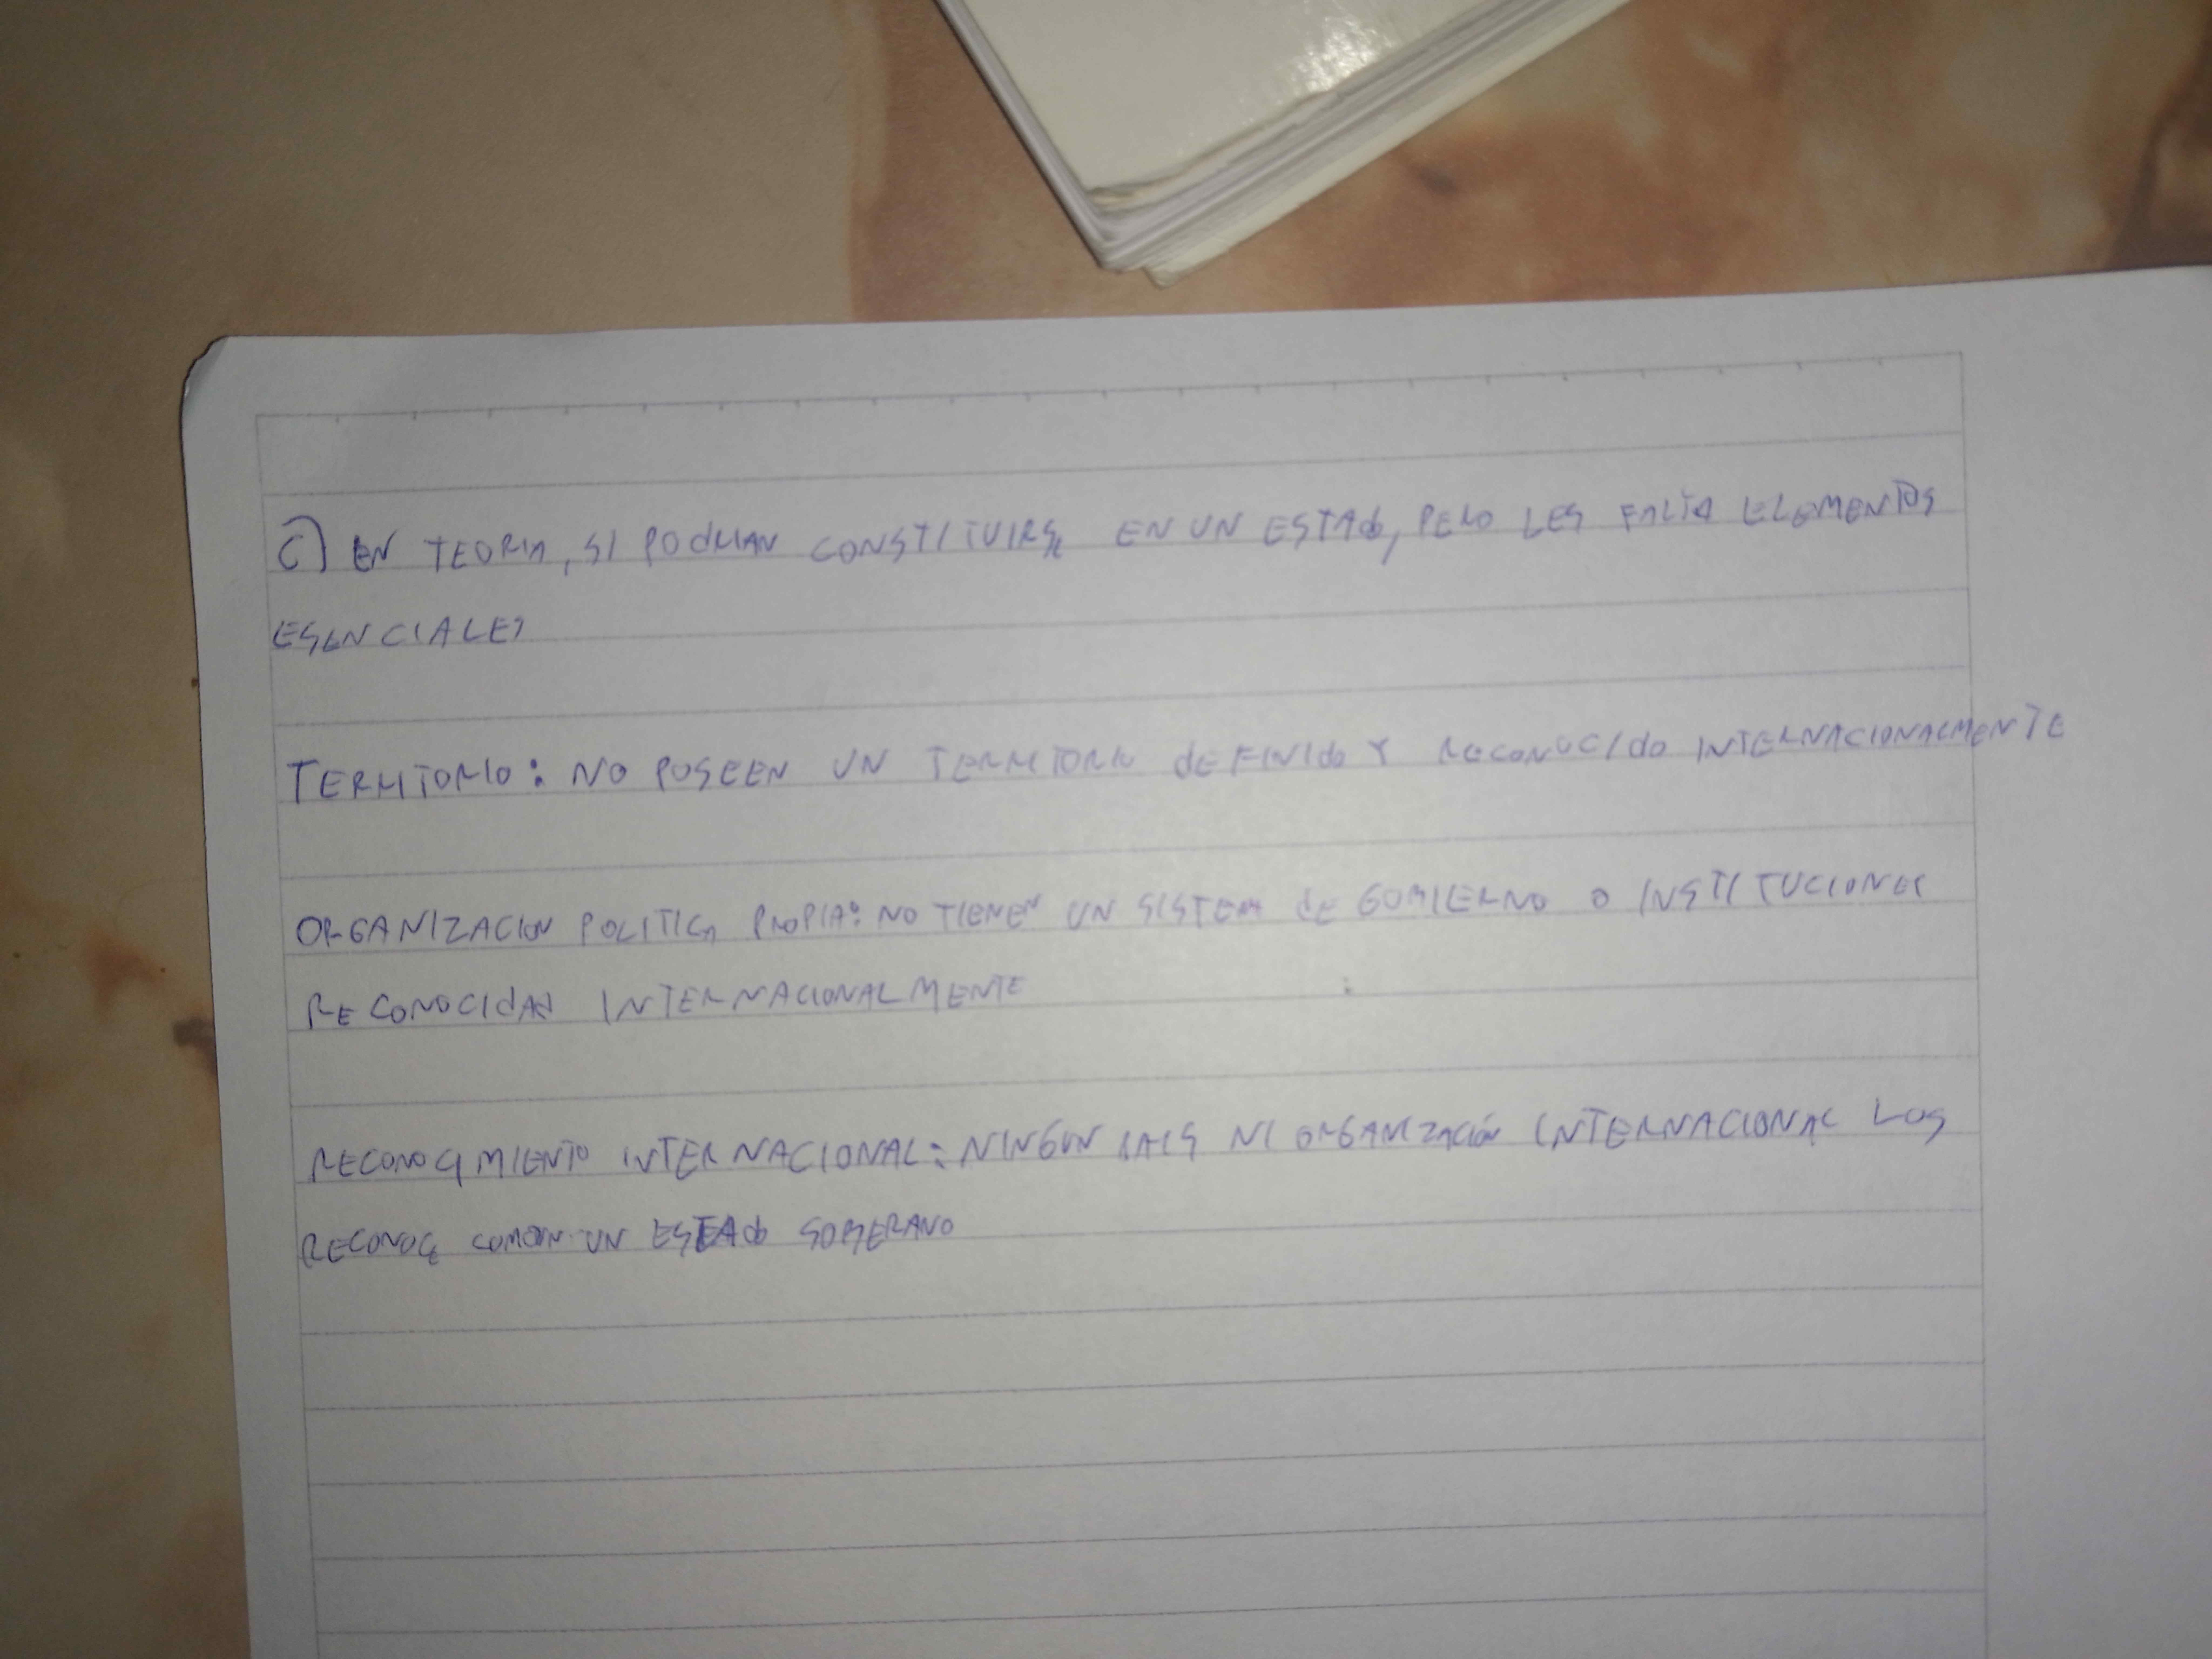 C) EN TEORIA, SI PODRIAN CONSTITUIRSE EN UN ESTADO, PERO LES FALTA ELEMENTOS
ESENCIALES
TERRITORIO: NO POSEEN UN TERRITORIO DEFINIDO Y RECONOCIDO INTERNACIONALMENTE
ORGANIZACION POLITICA PROPIA: NO TIENEN UN SISTEMA DE GOBIERNO O INSTITUCIONES
RECONOCIDAS INTERNACIONALMENTE
RECONOCIMIENTO INTERNACIONAL: NINGUN PAIS NI ORGANIZACIÓN INTERNACIONAL LOS
RECONOCE UN ESTADO SOBERANO